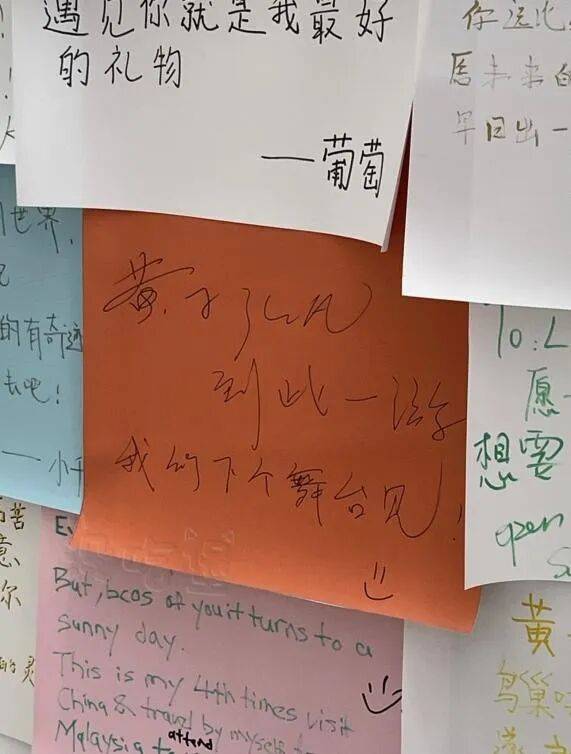 遇见你就是我最好
的礼物
——葡萄
你
愿未来的
早日出一
世界，
的有奇迹
去吧！
——小
黄子弘凡
到此一游
我们下个舞台见！
To:L
愿
想要
open
苦
意
你
灵
But, bcos of you it turns to a
sunny day.
This is my 4th times visit
China & travel by myself
attend
Malaysia to
黄
鸟巢